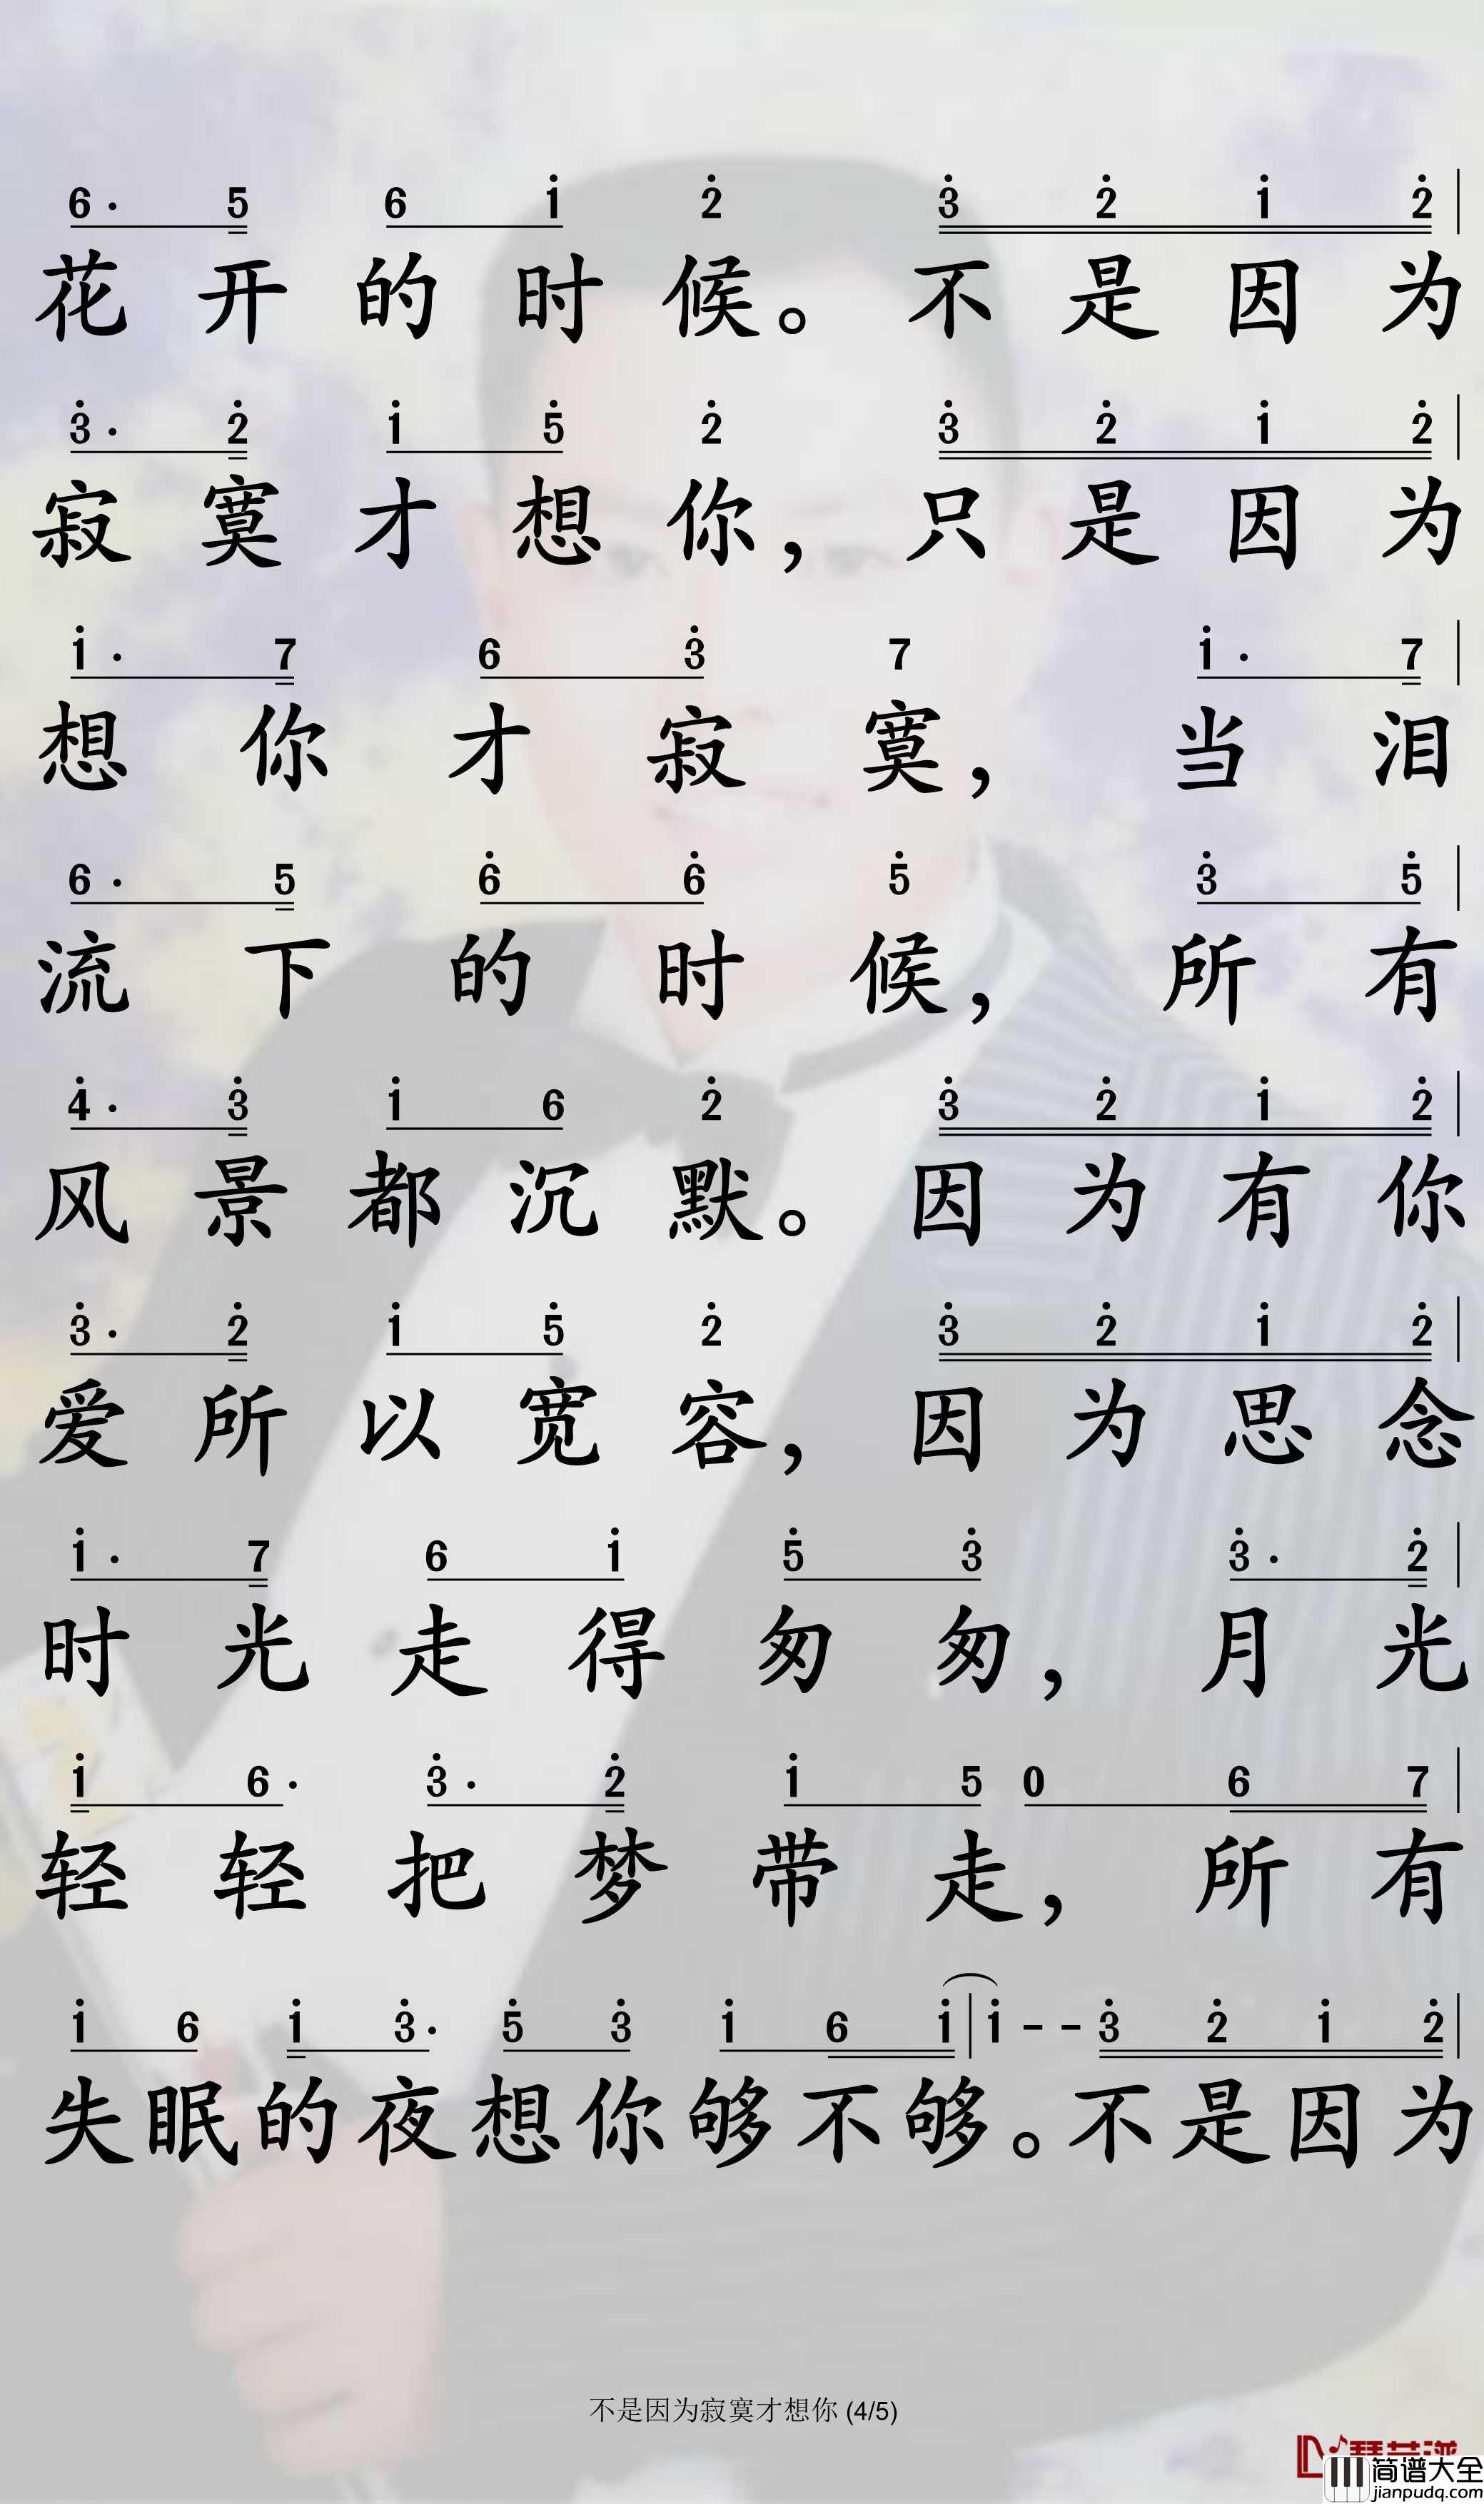 6· 5 6 i 2̇ 3̇ 2̇ i 2̇
花开的时候。不是因为
3̇· 2̇ i 5̇ 2̇ 3̇ 2̇ i 2̇
寂寞才想你，只是因为
i· 7 6 3̇ 7 i· 7
想你才寂寞，当泪
6· 5 6̇ 6̇ 5̇ 3̇ 5̇
流下的时候，所有
4̇· 3̇ i 6 2̇ 3̇ 2̇ i 2̇
风景都沉默。因为有你
3̇· 2̇ i 5̇ 2̇ 3̇ 2̇ i 2̇
爱所以宽容，因为思念
i· 7 6 i 5̇ 3̇ 3̇· 2̇
时光走得匆匆，月光
i 6· 3̇· 2̇ i 5 0 6 7
轻轻把梦带走，所有
i 6 i 3̇· 5̇ 3̇ i 6 i | i - - 3̇ 2̇ i 2̇
失眠的夜想你够不够。不是因为
不是因为寂寞才想你 (4/5)
简谱大全
jianpudq.com